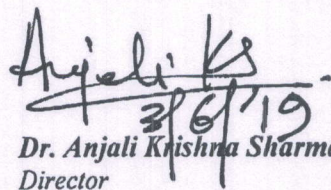 Anjali KS
3/6/19
Dr. Anjali Krishna Sharma
Director